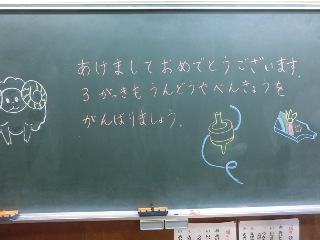 あけましておめでとうございます.
3がっきもうんどうやべんきょうを
がんばりましょう.